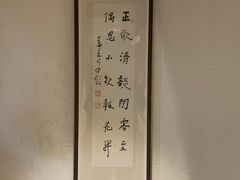 正欲清談聞客至
偶思小飲報花開